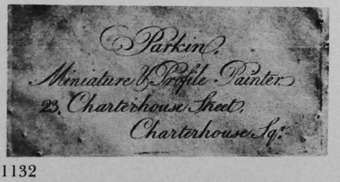 Parkin,
Miniature & Profile Painter
23, Charterhouse Street,
Charterhouse Sqr.
1132